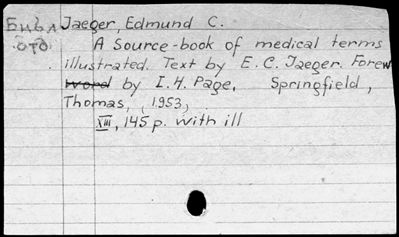 Библ Jaeger, Edmund C.
отд A Source-book of medical terms
illustrated. Text by E.C. Jaeger. Forew
word by I.H. Page. Springfield,
Thomas, (1953)
XIII, 145 p. with ill